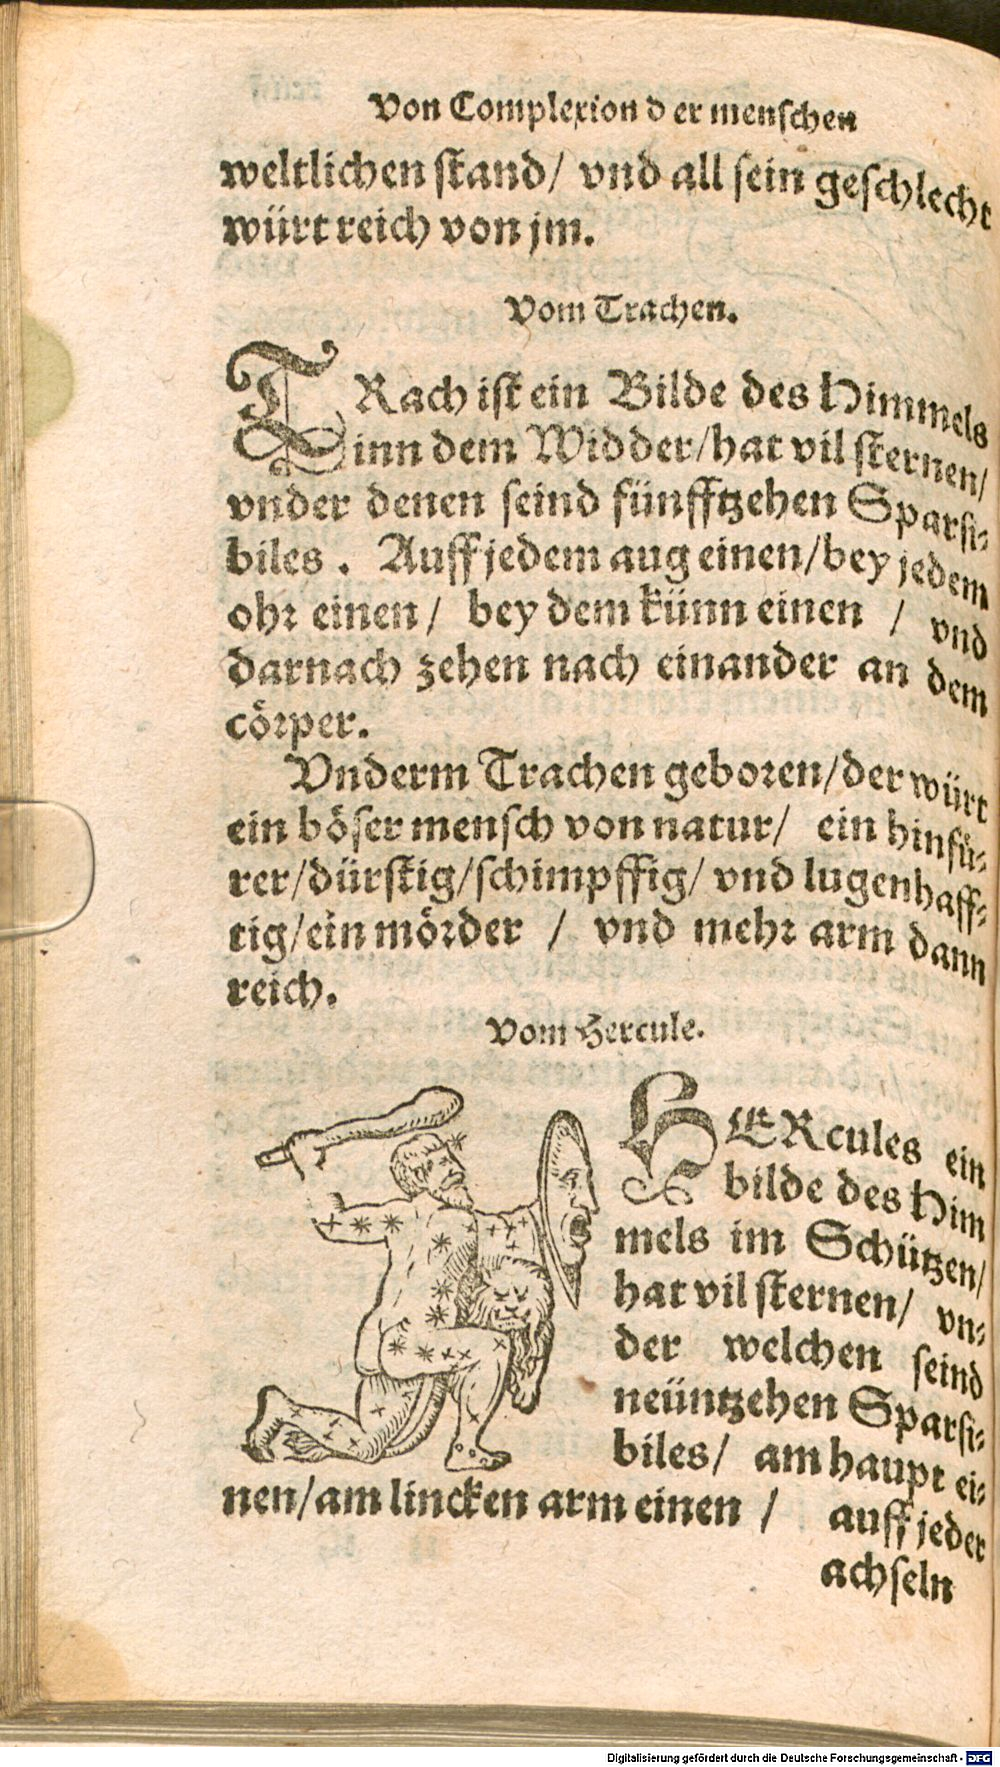 Von Complexion d er menschen
weltlichen stand/ vnd all sein geschlecht
würt reich von jm.
Vom Trachen.
TRach ist ein Bilde des Himmels
inn dem Widder/hat vil sternen/
vnder denen seind fünfftzehen Sparsi⸗
biles. Auff jedem aug einen/bey jedem
ohr einen/ bey dem künn einen / vnd
darnach zehen nach einander an dem
cörper.
Vnderm Trachen geboren/der würt
ein böser mensch von natur/ ein hinfü⸗
rer/dürstig/schimpffig/ vnd lugenhaff⸗
tig/ein mörder / vnd mehr arm dann
reich.
Vom Hercule.
HERcules ein
bilde des Him
mels im Schützen/
hat vil sternen/ vn⸗
der welchen seind
neüntzehen Sparsi⸗
biles/ am haupt ei⸗
nen/am lincken arm einen / auff jeder
achseln
Digitalisierung gefördert durch die Deutsche Forschungsgemeinschaft - DFG